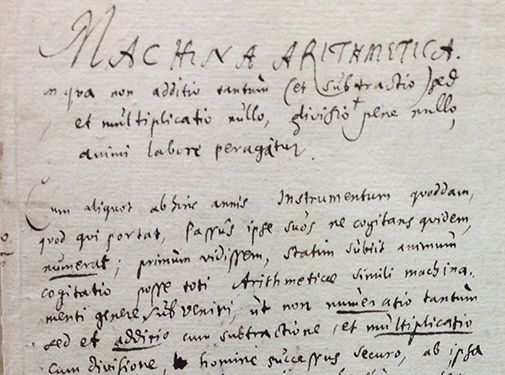 MACHINA ARITHMETICA.
in qva non additio tantùm (et sûbtractio) sed
et mûltiplicatio nûllo, divisio† pene nûllo,
animi labore peragatur.
Cum aliquot abhinc annis Instrumentum quoddam,
quod qui portat, passûs ipse sûos ne cogitans quidem,
numerat, primùm vidissem, statim sûbiit animûm
cogitatio posse toti Arithmeticæ simili machina-
menti genere sûbveniri, ût non nûmeratio tantûm
sed et additio cum subtractione, et mûltiplicatio
cum divisione, homine successus securo, ab ipsa